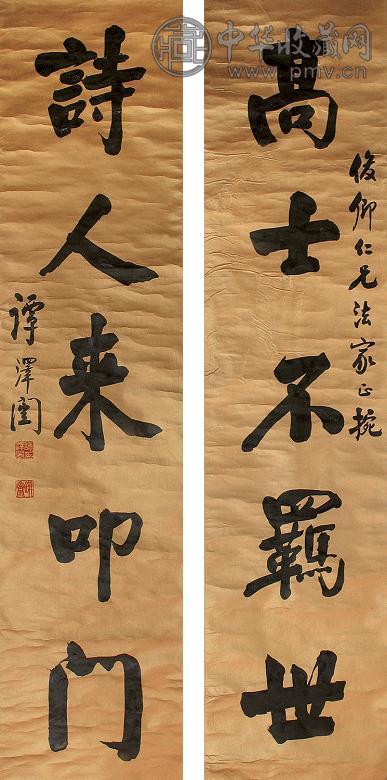 中华收藏网
www.pmv.cn
高士不羈世
俊卿仁兄法家正捥
詩人来叩门
譚澤闓